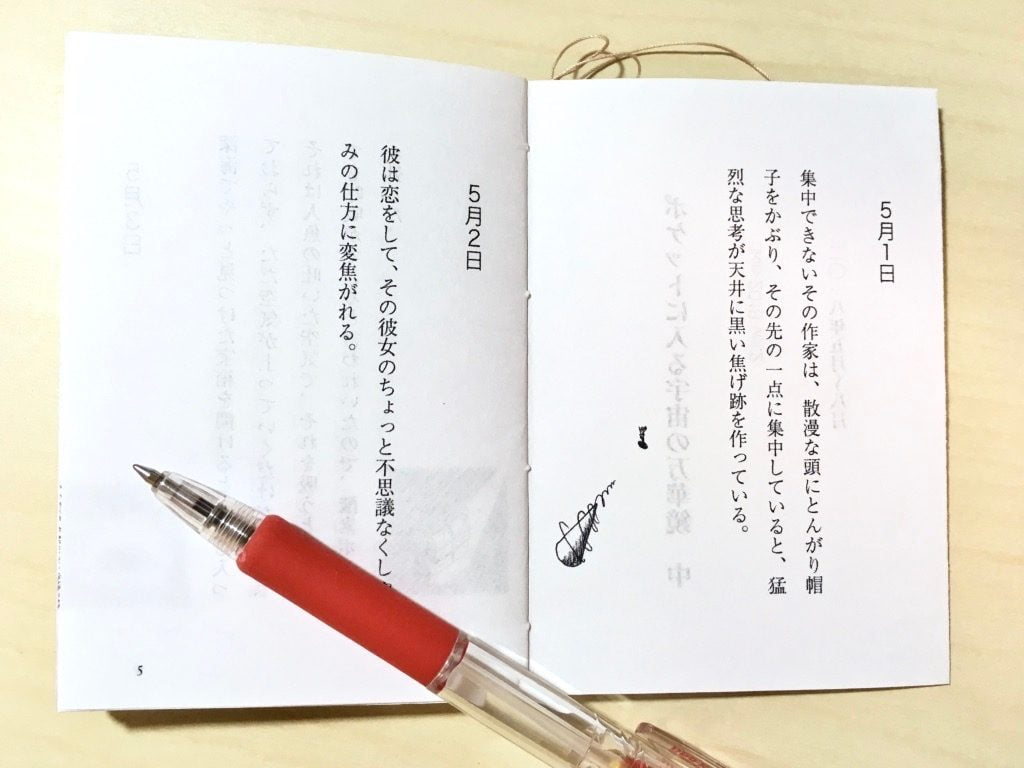 5月1日
集中できないその作家は、散漫な頭にとんがり帽
子をかぶり、その先の一点に集中していると、猛
烈な思考が天井に黒い焦げ跡を作っている。
5月2日
彼は恋をして、その彼女のちょっと不思議なくしゃ
みの仕方に恋焦がれる。
5